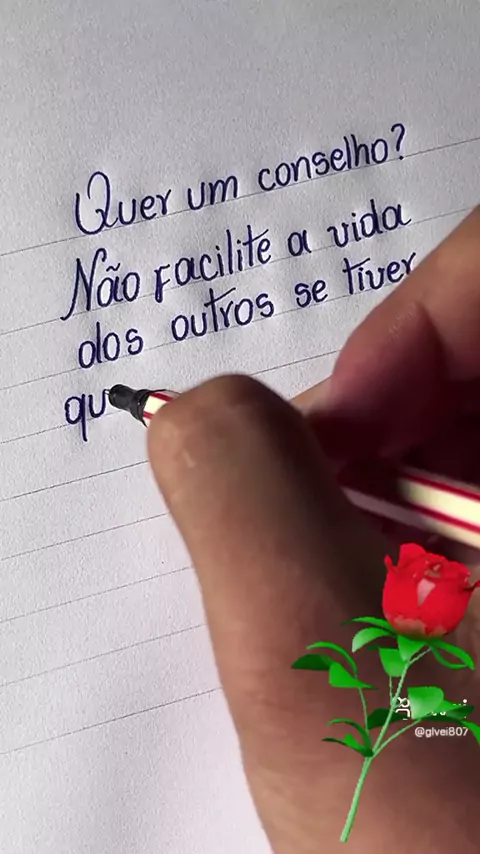 Quer um conselho?
Não facilite a vida
dos outros se tiver
qu
@glvei807